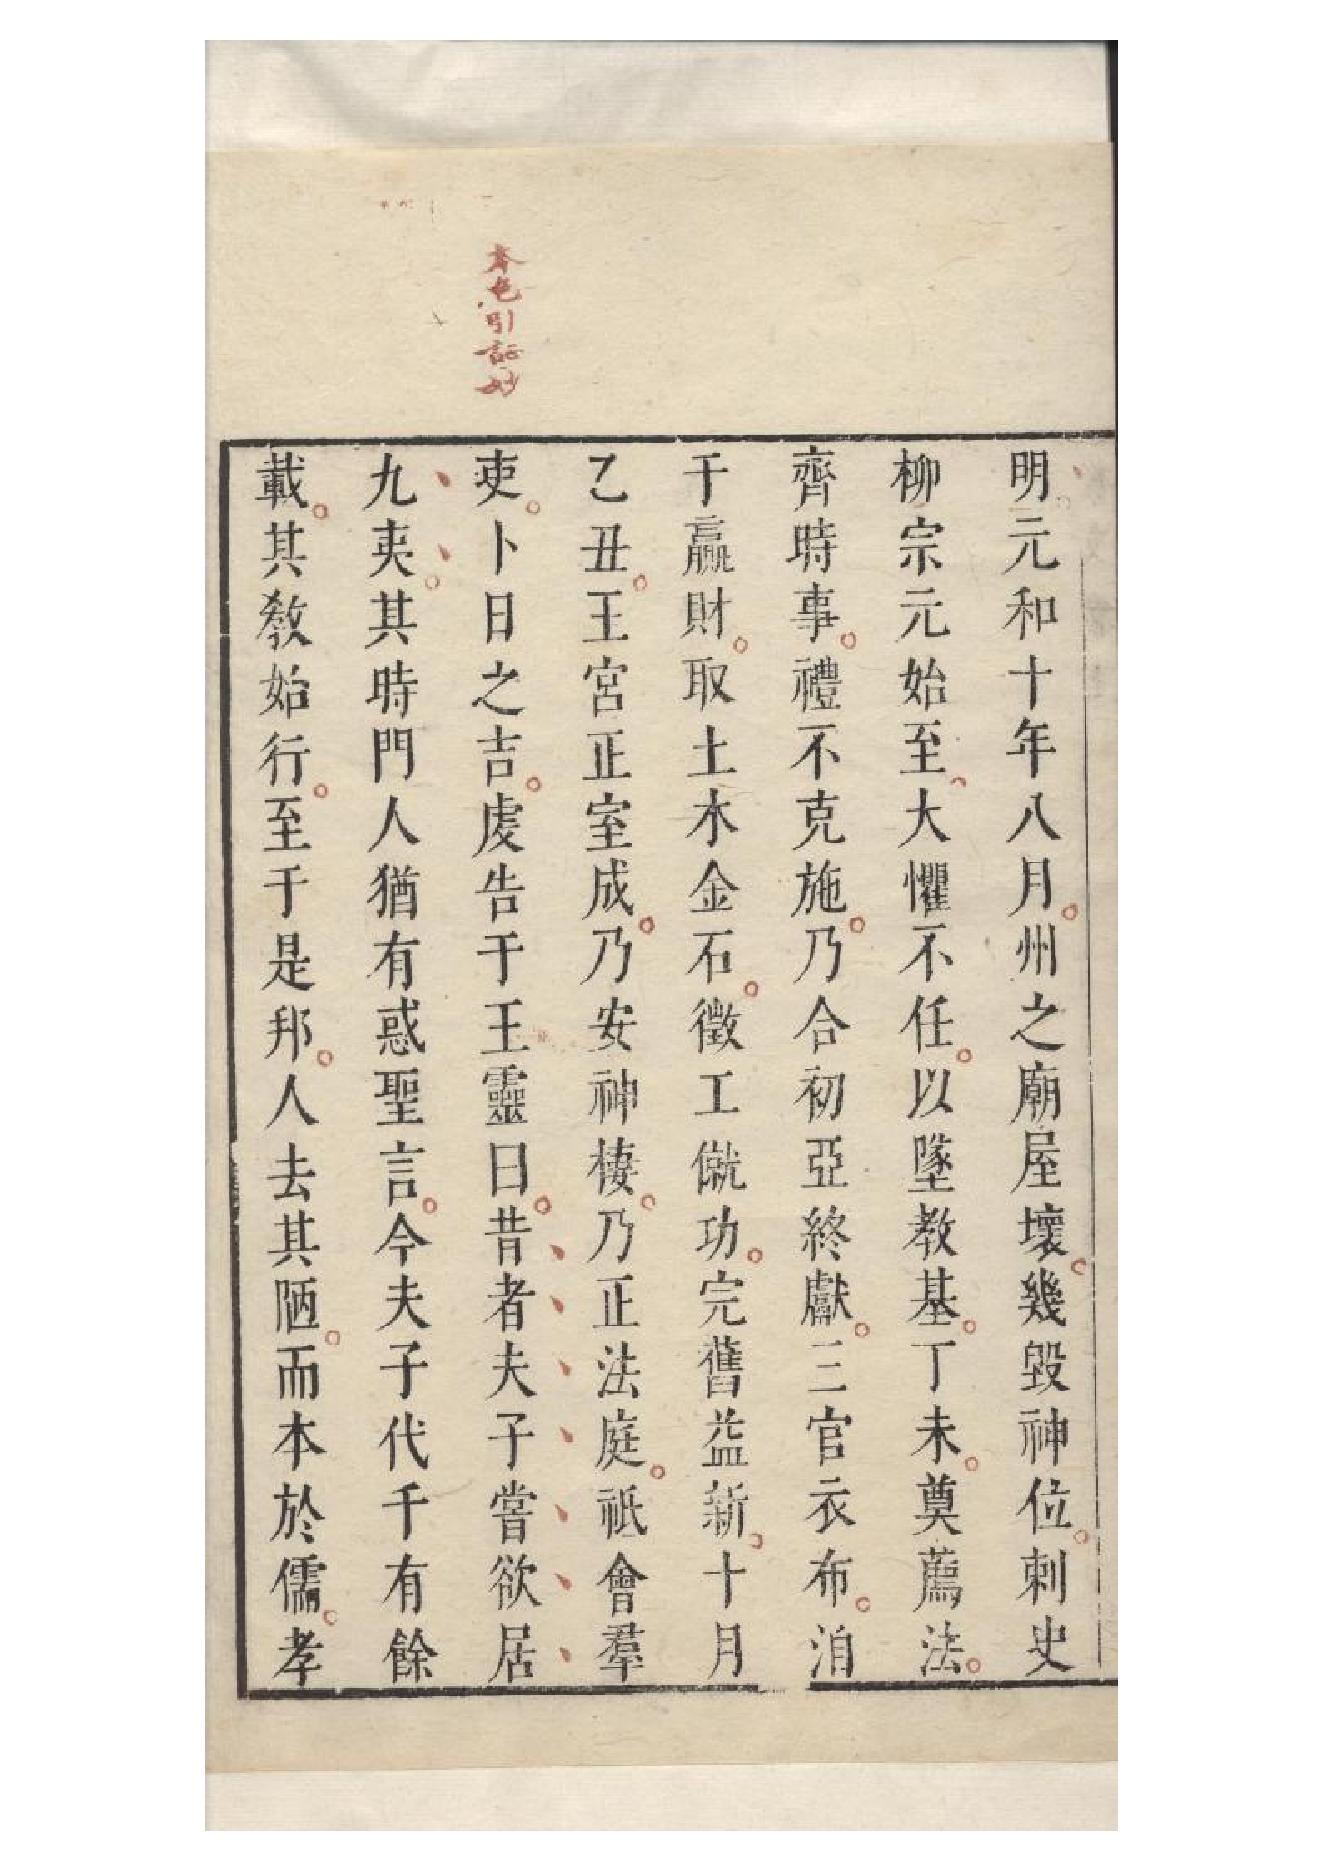 本色引証妙
明元和十年八月。州之廟屋壞。幾毀神位。刺史
柳宗元始至、大懼不任。以墜教基。丁未。奠薦法。
齊時事。禮不克施。乃合初亞終獻。三官衣布。洎
于贏財。取土木金石。徵工僦功。完舊益新。十月
乙丑。王宮正室成。乃安神棲。乃正法庭。祗會羣
吏。卜日之吉。虔告于王靈曰。昔者夫子嘗欲居
九夷。其時門人猶有惑聖言。今夫子代千有餘
載。其敎始行。至于是邦。人去其陋。而本於儒。孝